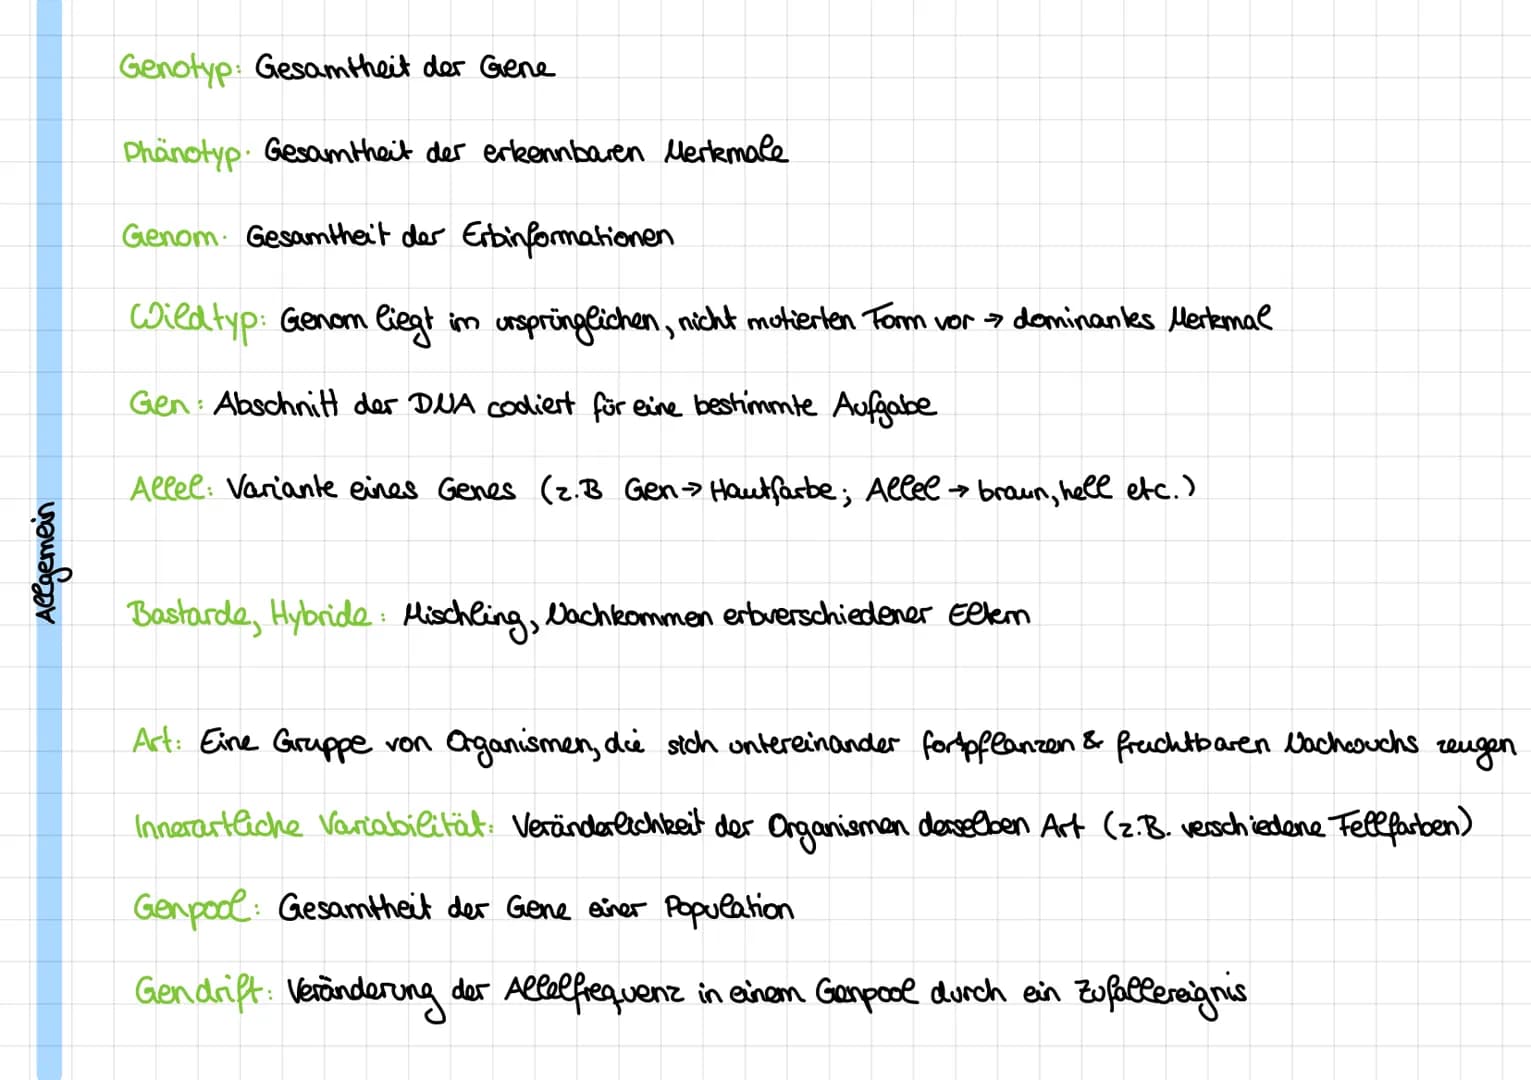 Genotyp: Gesamtheit der Gene
Phänotyp: Gesamtheit der erkennbaren Merkmale
Genom: Gesamtheit der Erbinformationen
Wildtyp: Genom liegt im ursprünglichen, nicht mutierten Form vor → dominantes Merkmal
Gen: Abschnitt der DNA codiert für eine bestimmte Aufgabe
Allel: Variante eines Genes (z.B Gen → Hautfarbe; Allel → braun, hell etc.)
Allgemein
Bastarde, Hybride: Mischling, Nachkommen erbverschiedener Eltern
Art: Eine Gruppe von Organismen, die sich untereinander fortpflanzen & fruchtbaren Nachwuchs zeugen
Innerartliche Variabilität: Veränderlichkeit der Organismen derselben Art (z.B. verschiedene Fellfarben)
Genpool: Gesamtheit der Gene einer Population
Gendrift: Veränderung der Allelfrequenz in einem Genpool durch ein Zufallereignis